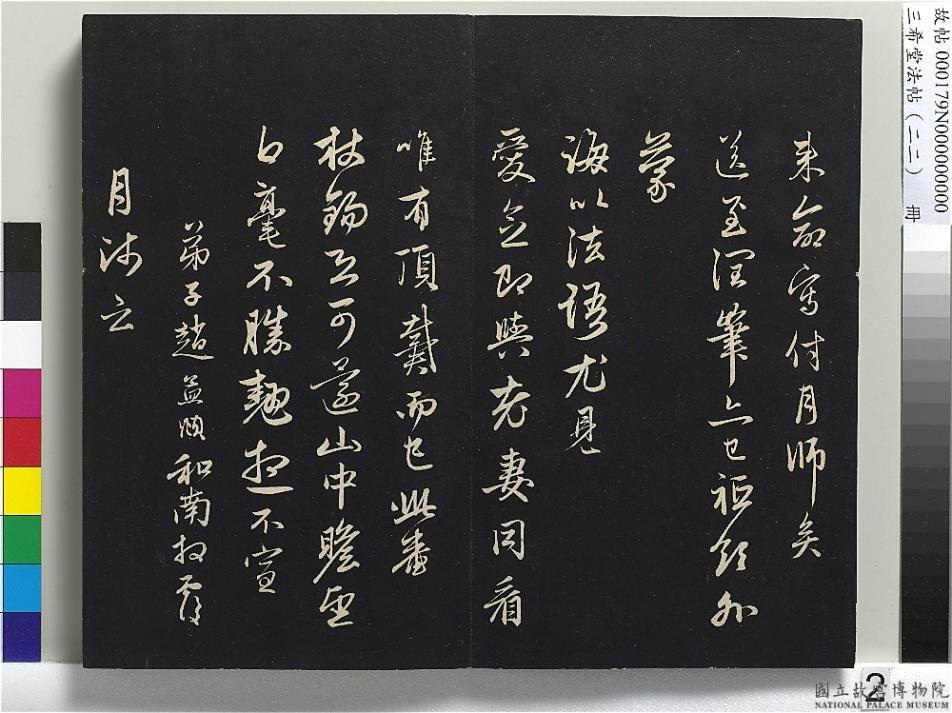 来命寫付月師矣
送至潤筆亦已祗領外
蒙
誨以法語尤見
愛念即與老妻同看
唯有頂戴而已此番
杖錫又可還山中瞻望
白毫不勝翹想不宣
弟子趙孟頫和南拜覆
故帖 000179N000000000
三希堂法帖(二二) 冊
2
國立故宮博物院
NATIONAL PALACE MUSEUM